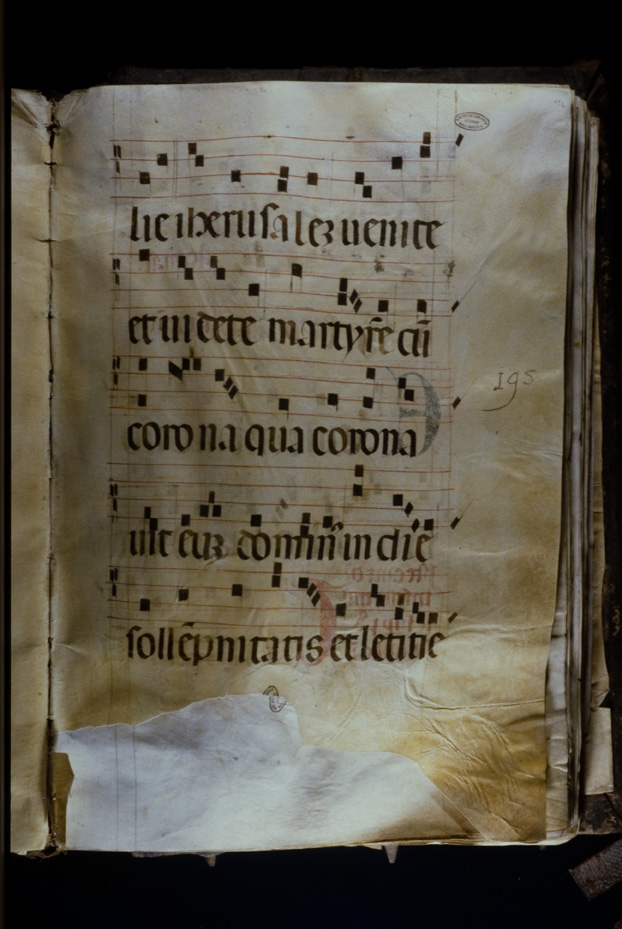 lie iherusalez uenite
et uidete martyrē cū
corona qua corona
uit euz domin̄ in die
sollēpnitatis et letitie
195